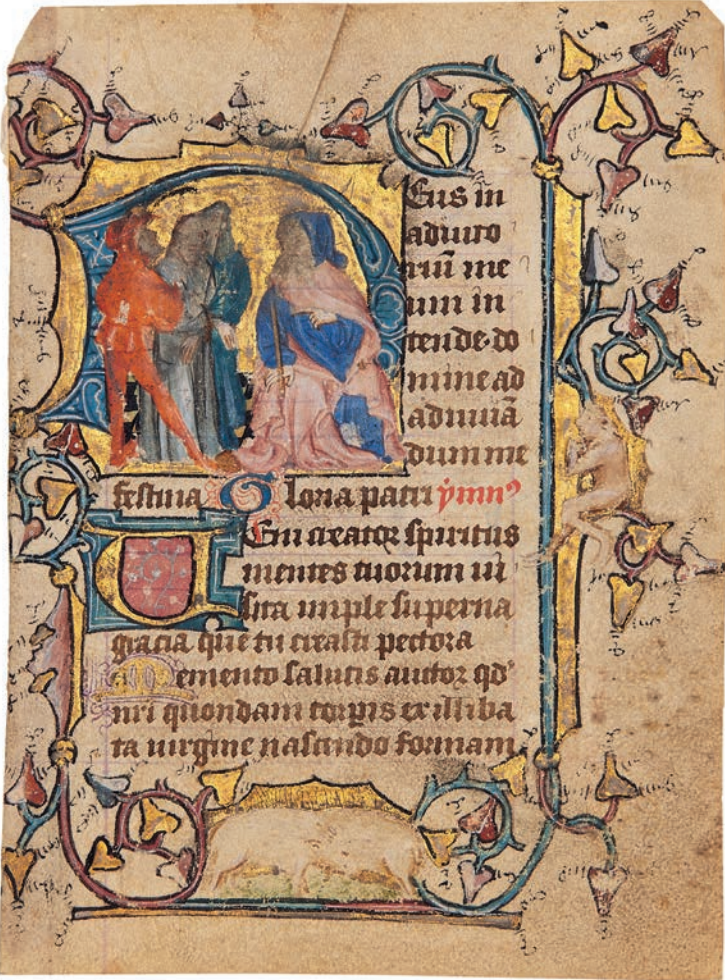 Deus in
adiuto
riū me
um in
tende·do
mine ad
adiuuā
dum me
festina Gloria patri ymnꝰ
Veni creator spiritus
mentes tuorum ui
sita imple superna
gracia que tu creasti pectora
Memento salutis auctor qd'
nri quondam corpis ex illiba
ta uirgine nascendo formam